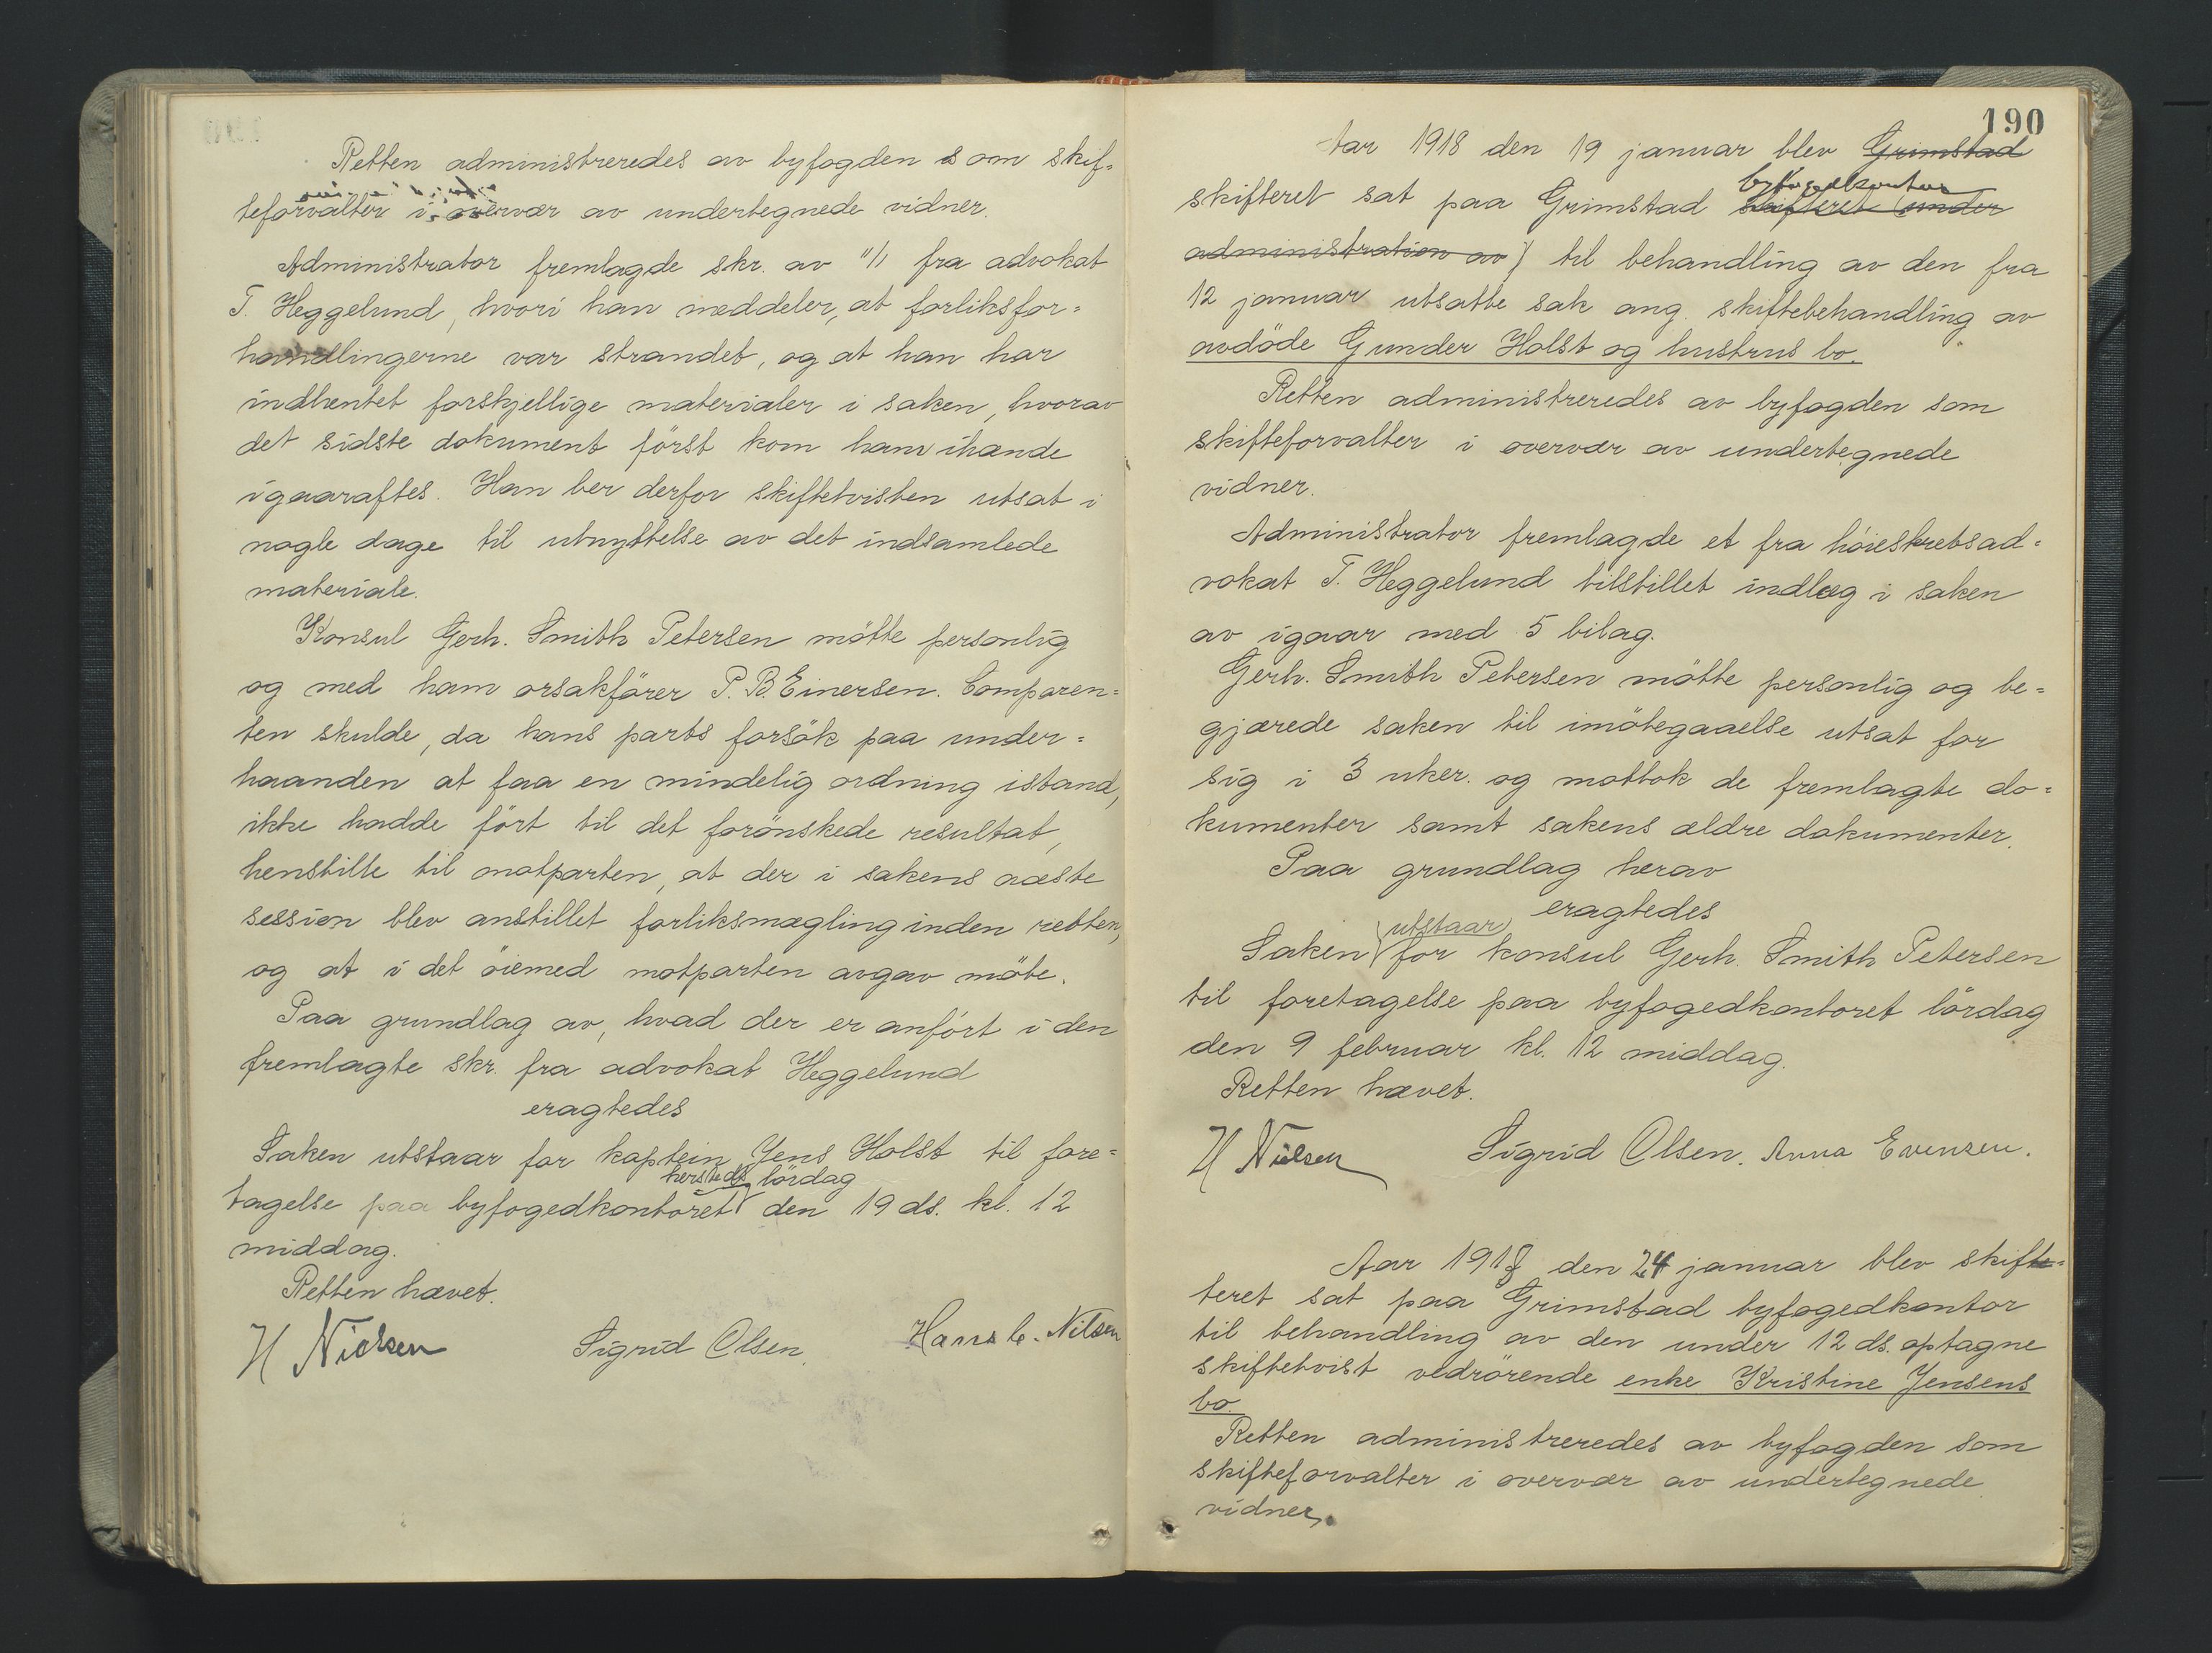 Retten administreredes av byfogden som skif=
teforvalter i overvær av undertegnede vidner.
Administrator fremlagde skr. av 11/1 fra advokat
T. Heggelund, hvori han meddeler, at forliksfor=
handlingerne var strandet, og at han har
indhentet forskjellige materialer i saken, hvorav
det sidste dokument först kom ham ihænde
igaaraftes. Han ber derfor skiftetvisten utsat i
nogle dage til utnyttelse av det indsamlede
materiale.
Konsul Gerh. Smith Petersen mötte personlig
og med ham orsakförer P. B. Einersen. Comparen=
ten skulde, da hans parts forsök paa under=
haanden at faa en mindelig ordning istand,
ikke hadde fört til det forönskede resultat,
henstille til motparten, at der i sakens næste
session blev anstillet forliksmægling inden retten,
og at i det öiemed motparten avgav möte.
Paa grundlag av, hvad der er anfört i den
fremlagte skr. fra advokat Heggelund
eragtedes
Saken utstaar for kaptein Jens Holst til fore=
hersteds lördag
tagelse paa byfogedkontoret den 19 ds. kl. 12
middag.
Retten hævet.
H Nielsen Sigrid Olsen, Hans C. Nilsen
190
Aar 1918 den 19 januar blev Grimstad
byfogedkontor
skifteret sat paa Grimstad skifteret under
administration av } til behandling av den fra
12 januar utsatte sak ang. skiftebehandling av
avdöde Gunder Holst og hustrus bo.
Retten administreredes av byfogden som
skifteforvalter i overvær av undertegnede
vidner.
Administrator fremlagde et fra höiesteretsad=
vokat T. Heggelund tilstillet indlæg i saken
av igaar med 5 bilag.
Gerh. Smith Petersen mötte personlig og be=
gjærede saken til imötegaaelse utsat for
sig i 3 uker. og mottok de fremlagte do=
kumenter samt sakens ældre dokumenter.
Paa grundlag herav
eragtedes
utstaar
Saken for konsul Gerh. Smith Petersen
til foretagelse paa byfogedkontoret lördag
den 9 februar kl. 12 middag.
Retten hævet.
H Nielsen Sigrid Olsen. Anna Evensen.
Aar 1918 den 24 januar blev skifte=
teret sat paa Grimstad byfogedkontor
til behandling av den under 12 ds. optagne
skiftetvist vedrörende enke Kristine Jensens
bo.
Retten administreredes av byfogden som
skifteforvalter i overvær av undertegnede
vidner.